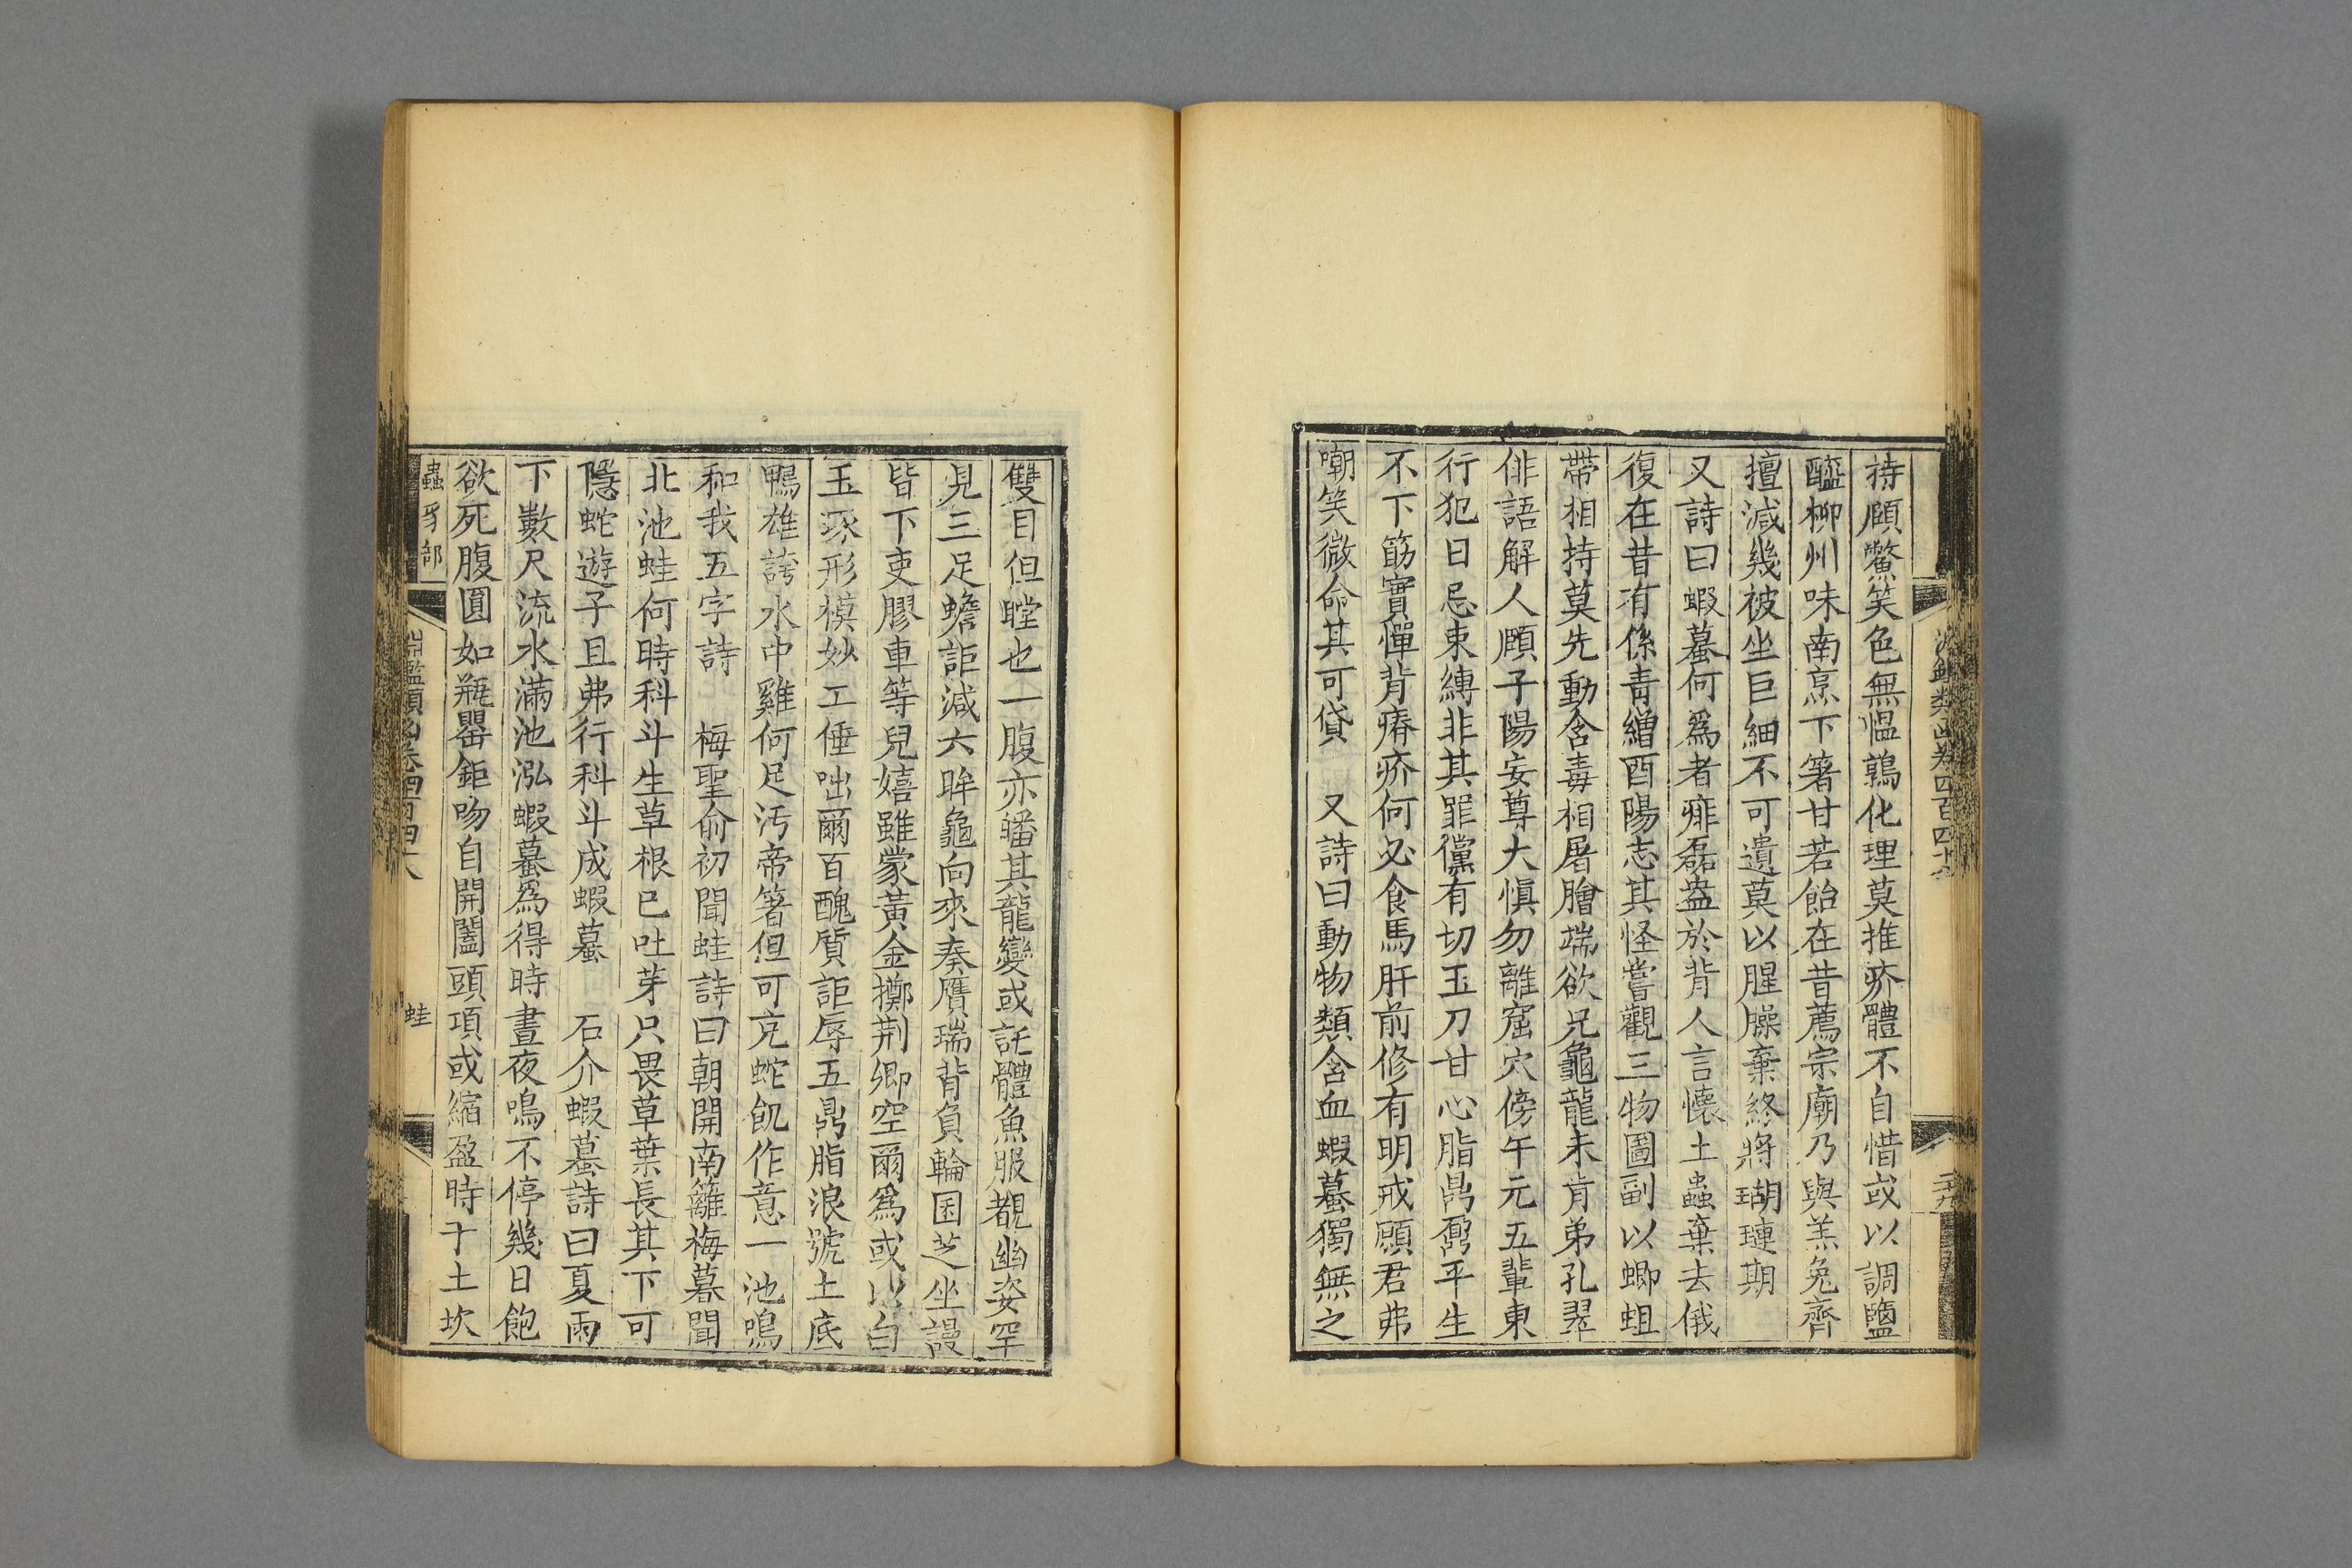 持頤鱉笑色無慍鶉化理莫推疥體不自惜或以調鹽
醯柳州味南烹下箸甘若飴在昔薦宗廟乃與羔兔齊
擅減幾被坐巨細不可遺莫以腥臊棄終將瑚璉期
又詩曰蝦蟇何爲者痱磊盎於背人言懷土蟲棄去俄
復在昔有係青繒酉陽志其怪嘗觀三物圖副以蝍蛆
帶相持莫先動含毒相屠膾端欲兄龜龍未肯弟孔翠
俳語解人頤子陽妄尊大愼勿離窟穴傍午元五輩東
行犯日忌束縛非其罪黨有切玉刀甘心脂鼎鼐平生
不下筯實憚背瘠疥何必食馬肝前修有明戒願君弗
嘲笑微命其可貸　又詩曰動物類含血蝦蟇獨無之
雙目但瞠也一腹亦皤其龍變或託體魚服覩幽姿罕
見三足蟾詎減六眸龜向來奏贋瑞背負輪囷芝坐謾
皆下吏膠車等兒嬉雖蒙黃金擲荆卿空爾爲或以白
玉琢形模妙工倕咄爾百醜質詎辱五鼎脂浪號土底
鴨雄誇水中雞何足汚帝箸但可充蛇飢作意一池鳴
和我五字詩　梅聖俞初聞蛙詩曰朝開南籬梅暮聞
北池蛙何時科斗生草根已吐芽只畏草葉長其下可
隱蛇遊子且弗行科斗成蝦蟇　石介蝦蟇詩曰夏雨
下數尺流水滿池泓蝦蟇爲得時晝夜鳴不停幾日飽
欲死腹圓如瓶罌鉅吻自開闔頭項或縮盈時于土坎
蟲豸部
淵鑑類函卷四百四十八
蛙